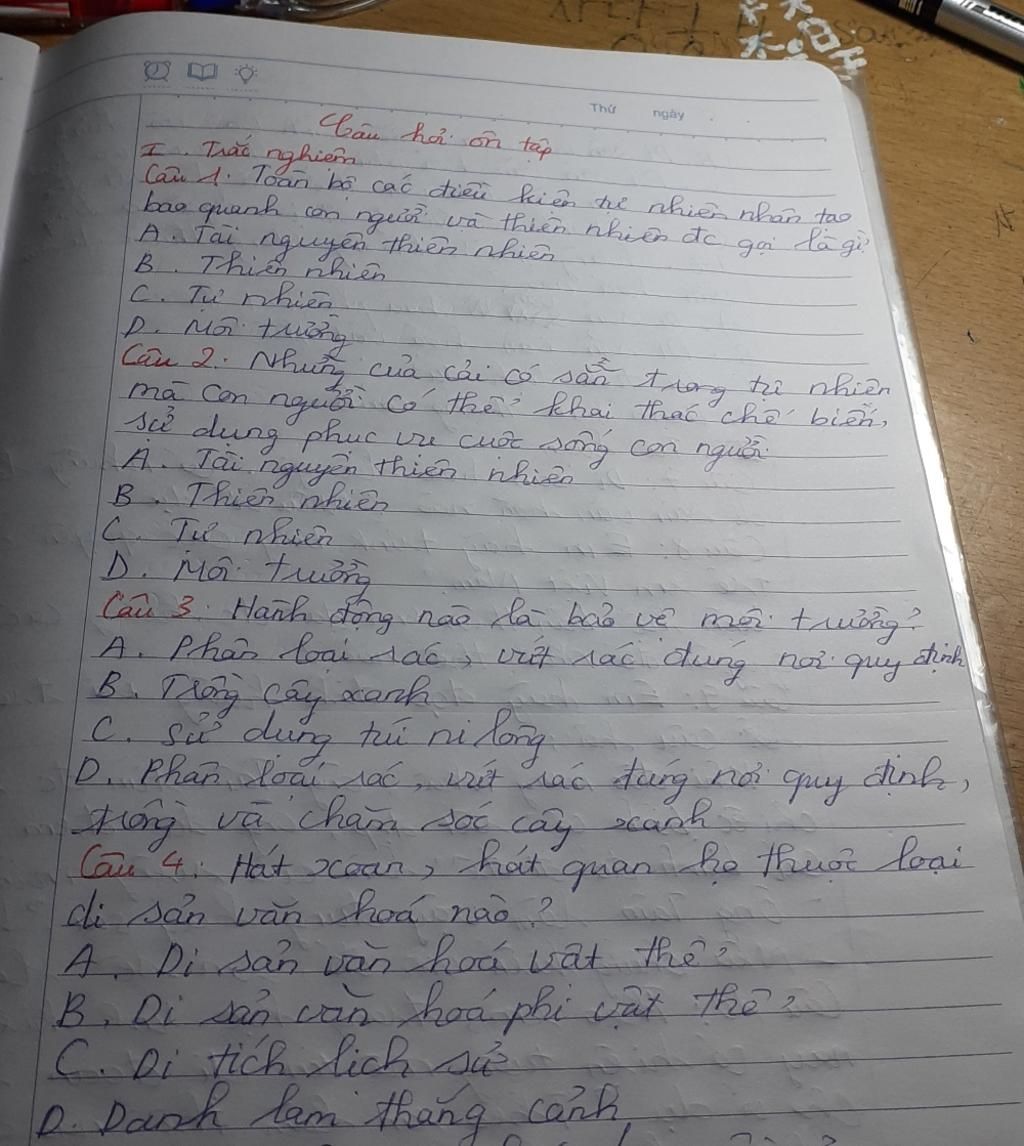 Thứ ngày
Câu hỏi ôn tập
I. Trắc nghiệm
Câu 1. Toàn bộ các điều kiện tự nhiên nhân tạo
bao quanh con người và thiên nhiên đc gọi là gì?
A. Tài nguyên thiên nhiên
B. Thiên nhiên
C. Tự nhiên
D. Môi trường
Câu 2. Những của cải có sẵn trong tự nhiên
mà con người có thể khai thác chế biến,
sử dụng phục vụ cuộc sống con người
A. Tài nguyên thiên nhiên
B. Thiên nhiên
C. Tự nhiên
D. Môi trường
Câu 3. Hành động nào là bảo vệ môi trường?
A. Phân loại rác, vứt rác đúng nơi quy định
B. Trồng cây xanh
C. Sử dụng túi ni lông
D. Phân loại rác, vứt rác đúng nơi quy định,
trồng và chăm sóc cây xanh
Câu 4: Hát xoan, hát quan họ thuộc loại
di sản văn hoá nào?
A. Di sản văn hoá vật thể
B. Di sản văn hoá phi vật thể
C. Di tích lịch sử
D. Danh lam thắng cảnh